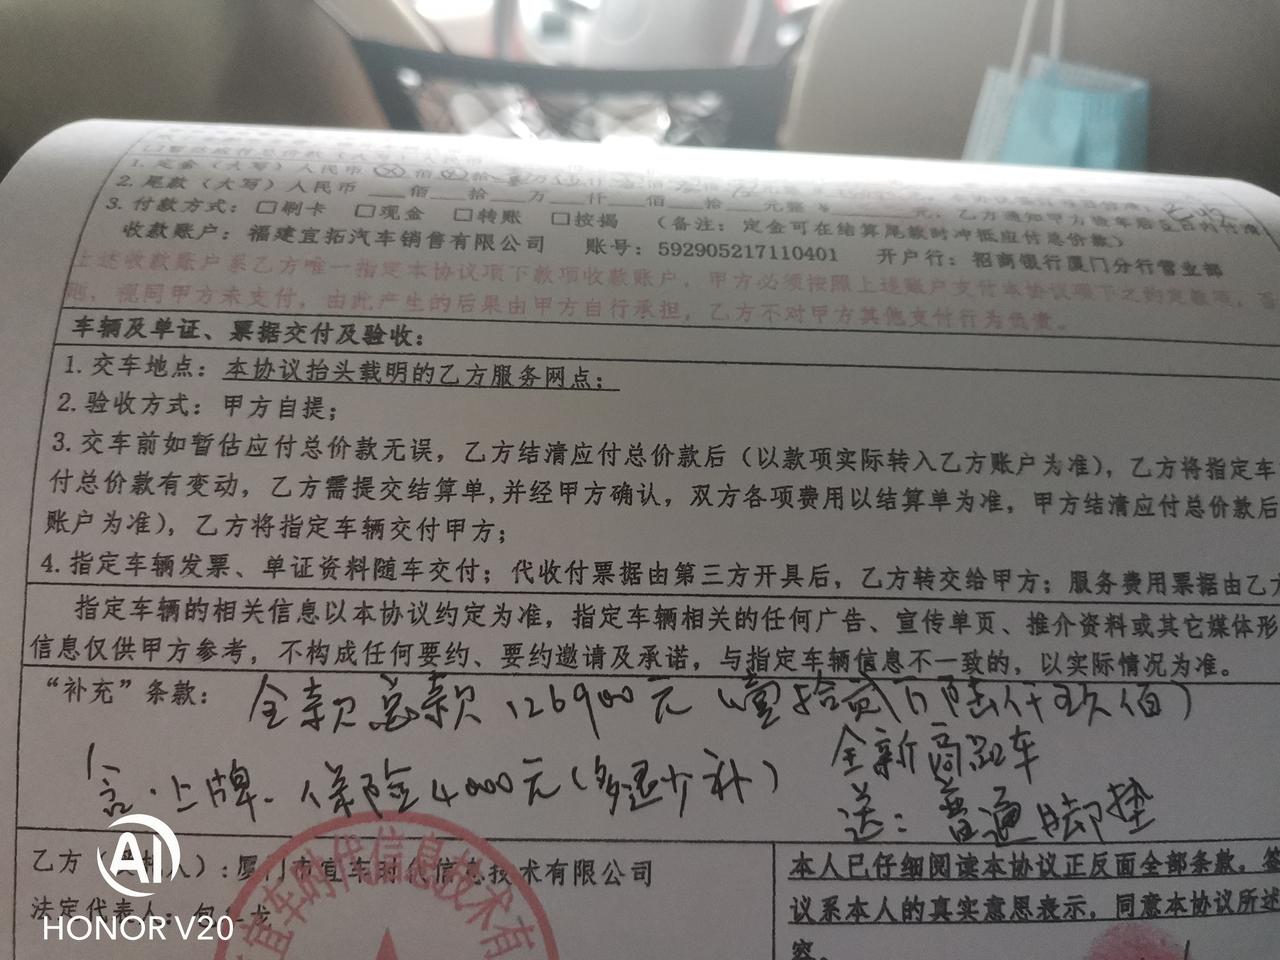 1. 定金（大写）人民币
2. 尾款（大写）人民币 佰 拾 万 仟 佰 拾 元整 ¥ 元，乙方通知甲方验车后 日内付清
3. 付款方式：□刷卡 □现金 □转账 □按揭 （备注：定金可在结算尾款时冲抵应付总价款）
收款账户：福建宜拓汽车销售有限公司 账号：592905217110401 开户行：招商银行厦门分行营业部
上述收款账户系乙方唯一指定本协议项下款项收款账户，甲方必须按照上述账户支付本协议项下之约定款项，否
则，视同甲方未支付，由此产生的后果由甲方自行承担，乙方不对甲方其他支付行为负责。
车辆及单证、票据交付及验收：
1. 交车地点：本协议抬头载明的乙方服务网点；
2. 验收方式：甲方自提；
3. 交车前如暂估应付总价款无误，乙方结清应付总价款后（以款项实际转入乙方账户为准），乙方将指定车
付总价款有变动，乙方需提交结算单,并经甲方确认，双方各项费用以结算单为准，甲方结清应付总价款后
账户为准），乙方将指定车辆交付甲方；
4. 指定车辆发票、单证资料随车交付；代收付票据由第三方开具后，乙方转交给甲方；服务费用票据由乙方
指定车辆的相关信息以本协议约定为准，指定车辆相关的任何广告、宣传单页、推介资料或其它媒体形
信息仅供甲方参考，不构成任何要约、要约邀请及承诺，与指定车辆信息不一致的，以实际情况为准。
“补充”条款： 全款总款126900元（壹拾贰万陆仟玖佰）
全新商品车
含：上牌、保险4000元（多退少补）
送：普通脚垫
乙方 人）：厦门市宜车时代信息技术有限公司
法定代表人： 龙
宜车时代信息技术有
本人已仔细阅读本协议正反面全部条款。签
议系本人的真实意思表示，同意本协议所述
容。
AI
HONOR V20